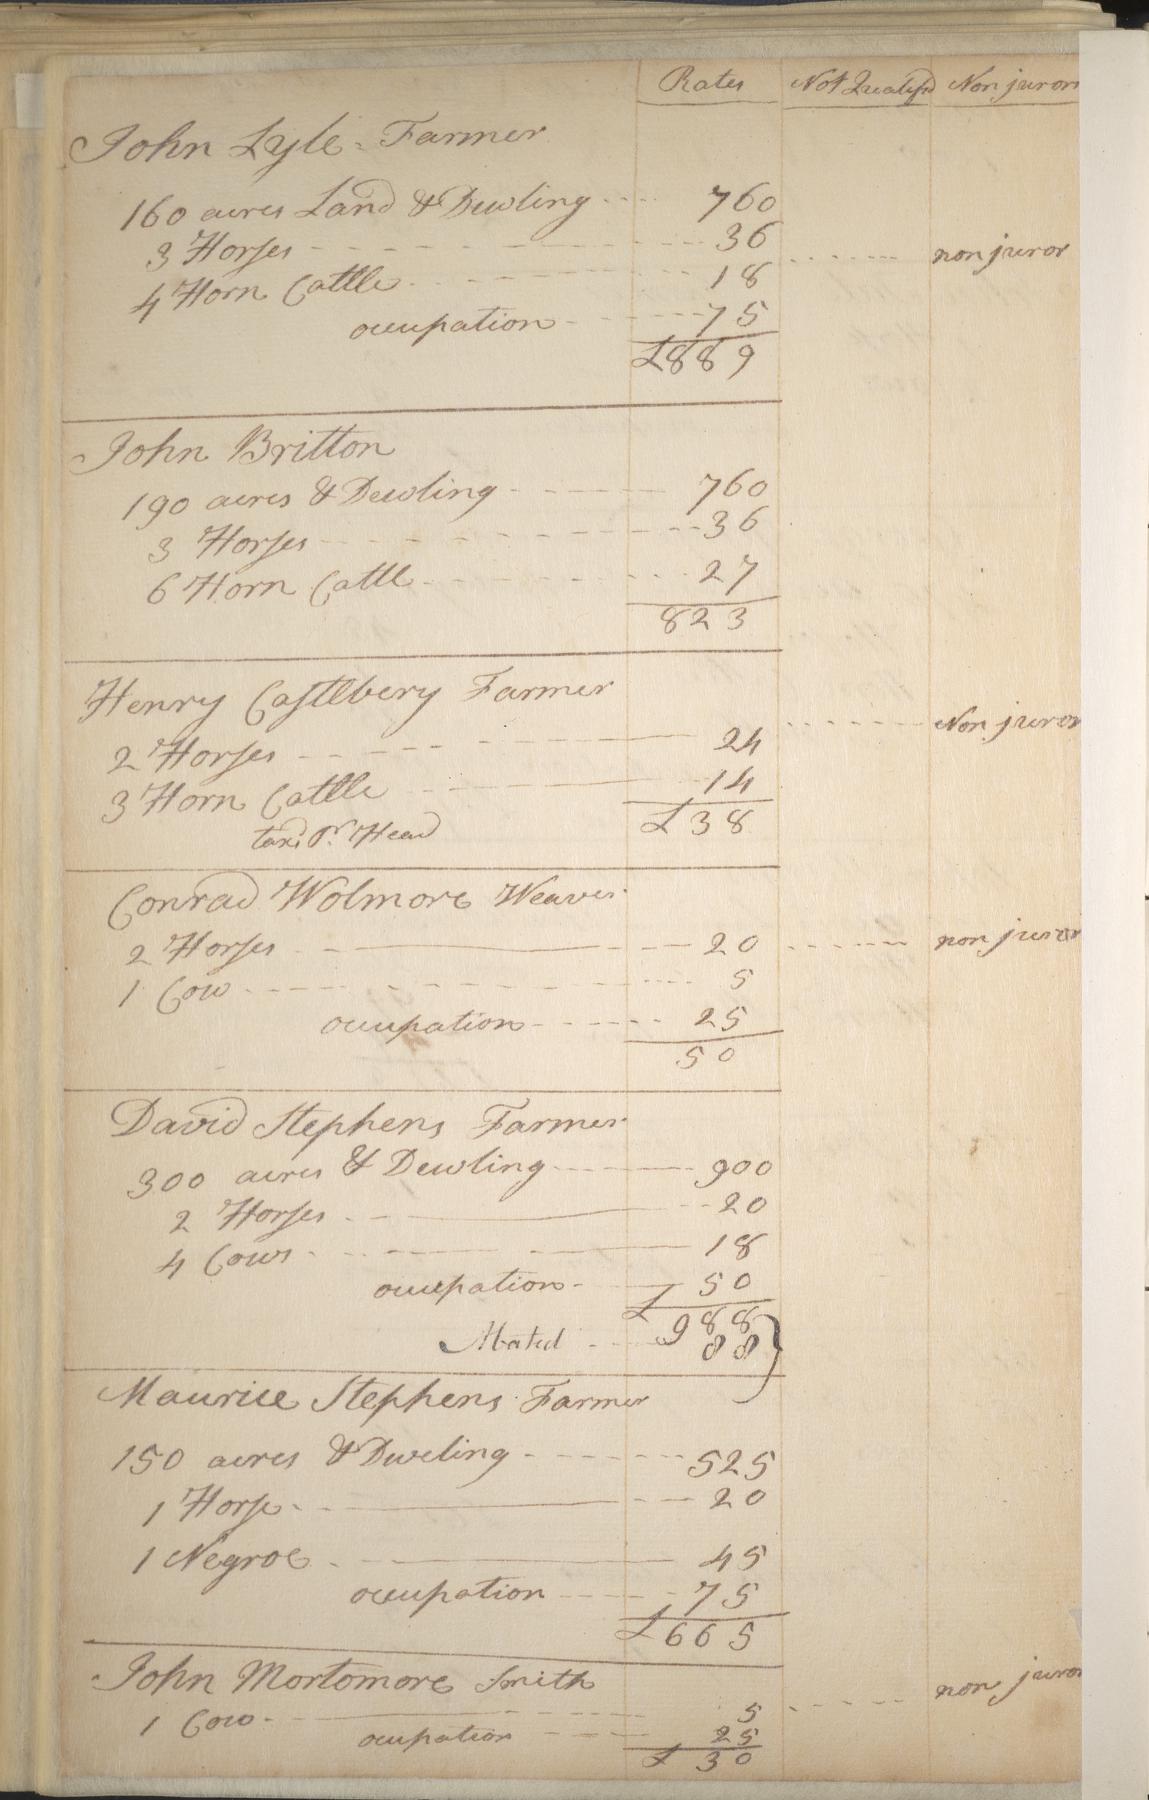 Rates Not Qualifd Non jurors
John Lyle - Farmer
160 acres Land & Dewling 760
3 Horses 36
non juror
4 Horn Cattle 18
occupation 75
£889
John Britton
190 acres & Dewling 760
3 Horses 36
6 Horn Cattle 27
823
Henry Castlbery Farmer
Non juror
2 Horses 24
3 Horn Cattle 14
£38
taxd Pr. Head
Conrad Wolmore Weaver
2 Horses 20 non juror
1 Cow 5
occupation 25
50
David Stephens Farmer
300 acres & Dewling 900
2 Horses 20
4 Cows 18
occupation 50
£988
Abated 88
Maurice Stephens Farmer
150 acres & Dweling 525
1 Horse 20
1 Negroe 45
occupation 75
£665
John Mortomore Smith
non juror
1 Cow 5
ocupation 25
£30